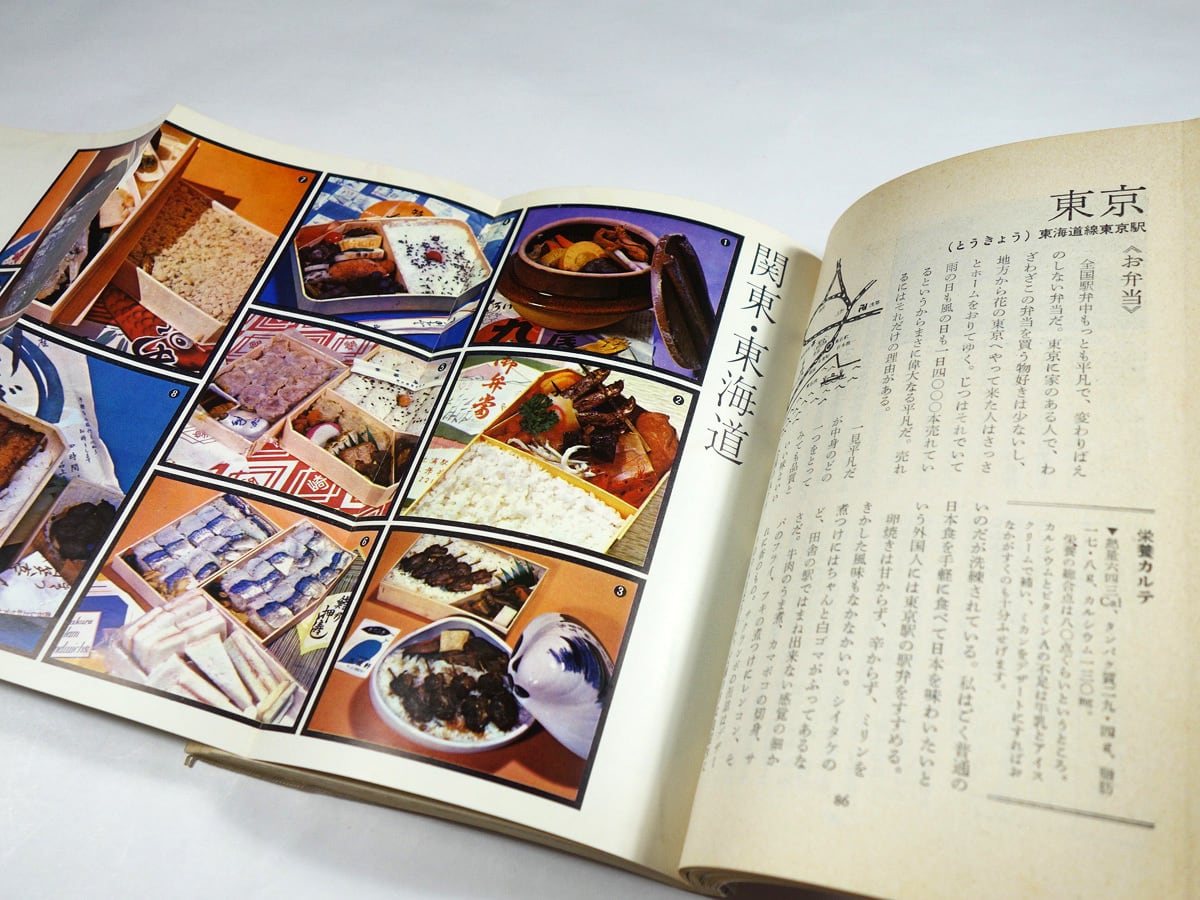 東京
(とうきょう) 東海道線東京駅
《お弁当》
全国駅弁中もっとも平凡で、変わりばえ
のしない弁当だ。東京に家のある人で、わ
ざわざこの弁当を買う物好きは少ないし、
地方から花の東京へやって来た人はさっさ
とホームをおりてゆく。じつはそれでいて
雨の日も風の日も一日四〇〇〇本売れてい
るというからまさに偉大なる平凡だ。売れ
るにはそれだけの理由がある。
一見平凡だ
が中身のどの
一つをとって
みても品質と
いのだが洗練されている。私はごく普通の
日本食を手軽に食べて日本を味わいたいと
いう外国人には東京駅の駅弁をすすめる。
卵焼きは甘からず、辛からず、ミリンを
きかした風味もなかなかいい。シイタケの
煮つけにはちゃんと白ゴマがふってあるな
ど、田舎の駅ではまね出来ない感覚の細か
さだ。牛肉のうま煮、カマボコの切身、サ
バのフライ、フキの煮つけにレンコン、そ
れに香のもの。サクランボの
栄養カルテ
▼熱量六四三Cal、タンパク質二九・四g、脂肪
一七・八g、カルシウム一三〇mg。
栄養の総合点は八〇点ぐらいというところ。
カルシウムとビタミンAの不足は牛乳とアイス
クリームで補い、ミカンをデザートにすればお
なかがすくのも十分ふせげます。
86
関東・東海道
1
2
御弁当
3
5
6
押寿し
7
8